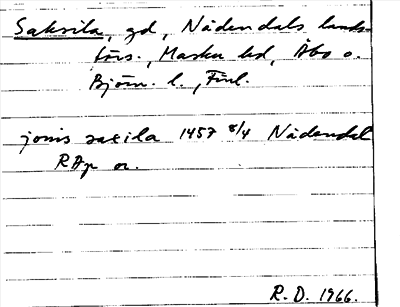 Saksila, gd, Nådendals lands-
förs., Masku hd, Åbo o.
Björn. l., Finl.
jonis saxila 1457 8/4 Nådendal
RAp or.
R.D. 1966.